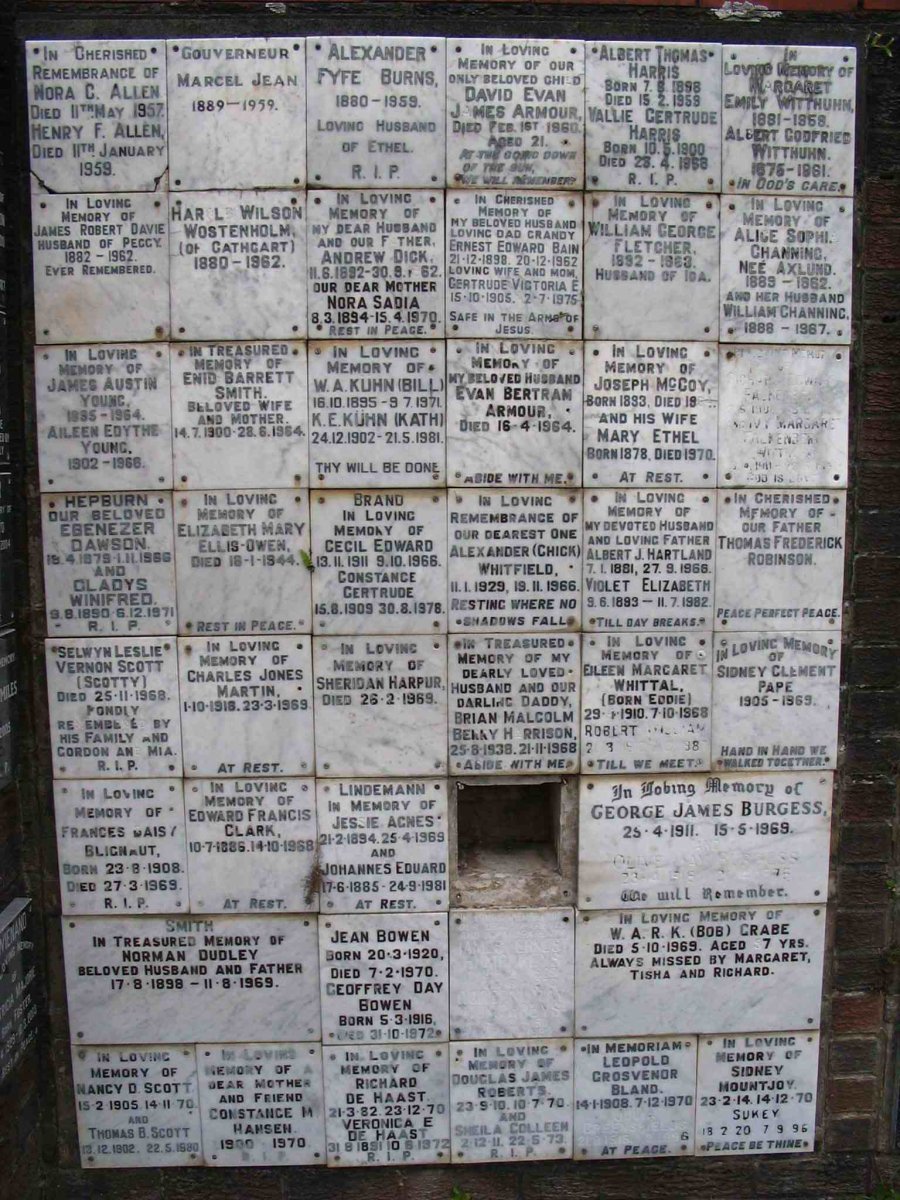 In Cherished
Remembrance of
Nora C. Allen
Died 11th May 1957.
Henry F. Allen,
Died 11th January
1959.
Gouverneur
Marcel Jean
1889–1959.
Alexander
Fyfe Burns,
1880–1959.
Loving Husband
of Ethel.
R. I. P.
In Loving
Memory of our
only beloved child
David Evan
James Armour,
Died Feb. 1st 1960.
Aged 21.
At the going down
of the sun,
we will remember
Albert Thomas
Harris
Born 7. 8. 1898
Died 15. 2. 1959
Vallie Gertrude
Harris
Born 10. 5. 1900
Died 23. 4. 1968
R. I. P.
In
Loving Memory of
Margaret
Emily Witthuhn,
1881–1958.
Albert Godfried
Witthuhn.
1875–1961.
In God's care.
In Loving
Memory of
James Robert Davie
Husband of Peggy.
1882–1962.
Ever Remembered.
Wilson
Wostenholm,
(of Cathcart)
1880–1962.
In Loving
Memory of
my dear Husband
and our Father,
Andrew Dick,
11.6.1892-30.9. 62.
our dear Mother
Nora Sadia
8.3.1894-15.4.1970.
Rest in Peace.
In Cherished
Memory of
my beloved Husband
loving Dad Grandy
Ernest Edward Bain
21.12.1898. 20.12.1962
Loving wife and mom,
Gertrude Victoria E
15.10.1905. 2.7.1975
Safe in the Arms of
Jesus.
In Loving
Memory of
William George
Fletcher,
1892–1963.
Husband of Ida.
In Loving
Memory of
Alice Sophi
Channing,
née Axlund.
1889–1962.
and her husband
William Channing,
1888–1967.
In Loving
Memory of
James Austin
Young,
1895–1964.
Aileen Edythe
Young,
1902–1966.
In Treasured
Memory of
Enid Barrett
Smith.
Beloved Wife
and Mother.
14.7.1900-28.6.1964.
In Loving
Memory of
W.A. Kuhn (Bill)
16.10.1895 - 9.7.1971.
K.E. Kuhn (Kath)
24.12.1902 - 21.5.1981.
Thy will be done
In Loving
Memory of
my beloved Husband
Evan Bertram
Armour,
Died 16-4-1964.
Abide with me.
In Loving
Memory of
Joseph McCoy,
Born 1893, Died 19
and his wife
Mary Ethel
Born 1878, Died 1970.
At Rest.
Hepburn
Our Beloved
Ebenezer
Dawson.
19.4.1879-1.11.1966
and
Gladys
Winifred.
9.8.1890 6.12.1971
R. I. P.
In Loving
Memory of
Elizabeth Mary
Ellis-Owen,
Died 18-1-1944.
Rest in Peace.
Brand
In Loving
Memory of
Cecil Edward
13.11.1911 9.10.1966.
Constance
Gertrude
15.8.1909 30.8.1978.
In Loving
Remembrance of
our dearest one
Alexander (Chick)
Whitfield,
11.1.1929, 19.11.1966.
Resting where no
shadows fall
In Loving
Memory of
my devoted Husband
and loving Father
Albert J. Hartland
7.1.1881, 27.9.1968.
Violet Elizabeth
9.6.1893 – 11.7.1982.
Till day breaks.
In Cherished
Memory of
our Father
Thomas Frederick
Robinson.
Peace Perfect Peace.
Selwyn Leslie
Vernon Scott
(Scotty)
Died 25-11-1968.
Fondly
by
his Family and
Gordon and Mia.
R. I. P.
In Loving
Memory of
Charles Jones
Martin,
1-10-1918. 23-3-1969.
At Rest.
In Loving
Memory of
Sheridan Harpur,
Died 26-2-1969.
In Treasured
Memory of my
dearly loved
Husband and our
darling Daddy,
Brian Malcolm
Harrison,
25-8-1938. 21-11-1968
Abide with me
In Loving
Memory of
Eileen Margaret
Whittal,
(born Eddie)
1910. 7-10-1968
Robert William
Till we meet
In Loving Memory
of
Sidney Clement
Pape
1905–1969.
Hand in Hand we
walked together.
In Loving
Memory of
Frances Daisy
Blignaut,
Born 23-8-1908.
Died 27-3-1969.
R. I. P.
In Loving
Memory of
Edward Francis
Clark,
10-7-1886. 14-10-1968
At Rest.
Lindemann
In Memory of
Jessie Agnes
21-2-1894. 25-4-1969
and
Johannes Eduard
17-6-1885 - 24-9-1981
At Rest.
In Loving Memory of
George James Burgess,
25-4-1911. 15-5-1969.
We will Remember.
Smith
In Treasured Memory of
Norman Dudley
Beloved Husband and Father
17-8-1898 – 11-8-1969.
Jean Bowen
Born 20-3-1920,
Died 7-2-1970.
Geoffrey Day
Bowen
Born 5-3-1916,
Died 31-10-1972
In Loving Memory of
W. A. R. K. (Bob) Crabe
Died 5-10-1969. Aged 7 yrs.
Always missed by Margaret,
Tisha and Richard.
In Loving
Memory of
Nancy D. Scott
15-2-1905. 14-11-70
and
Thomas B. Scott
13.12.1902. 22.5.1980
In Loving
Memory of a
dear Mother
and Friend
Constance M
Hansen.
1900 1970
R. I. P.
In Loving
Memory of
Richard
de Haast.
21-3-82. 23-12-70
Veronica E
de Haast
1891 10 6 1972
R. I. P.
In Loving
Memory of
Douglas James
Roberts.
23-9-10. 10-7-70
and
Sheila Colleen
2-12-11. 22-5-73.
R. I. P.
In Memoriam
Leopold
Grosvenor
Bland.
14-1-1908. 7-12-1970
At Peace.
In Loving
Memory of
Sidney
Mountjoy.
23-2-14. 14-12-70
Sukey
18 2 20 7 9 96
Peace be thine